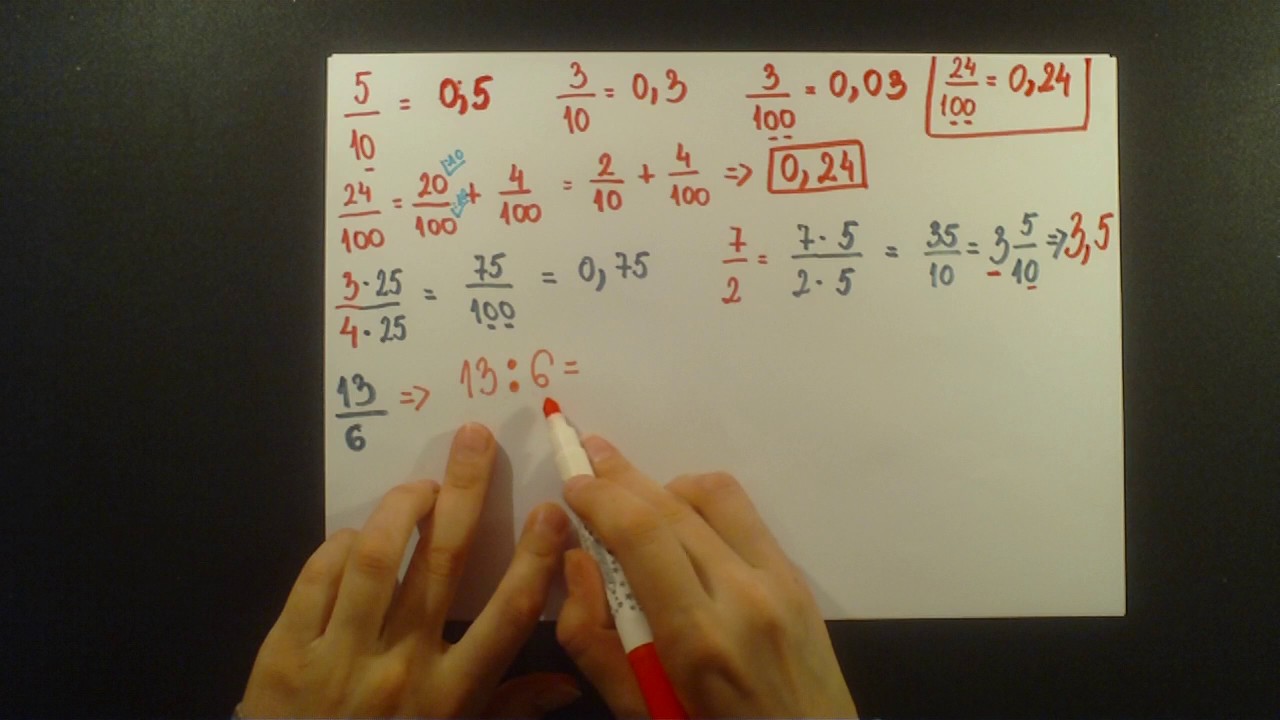 5/10 = 0,5 3/10 = 0,3 3/100 = 0,03 24/100 = 0,24
24/100 = 20/100 + 4/100 = 2/10 + 4/100 => 0,24
3·25/4·25 = 75/100 = 0,75 7/2 = 7·5/2·5 = 35/10 = 3 5/10 => 3,5
13/6 => 13:6=